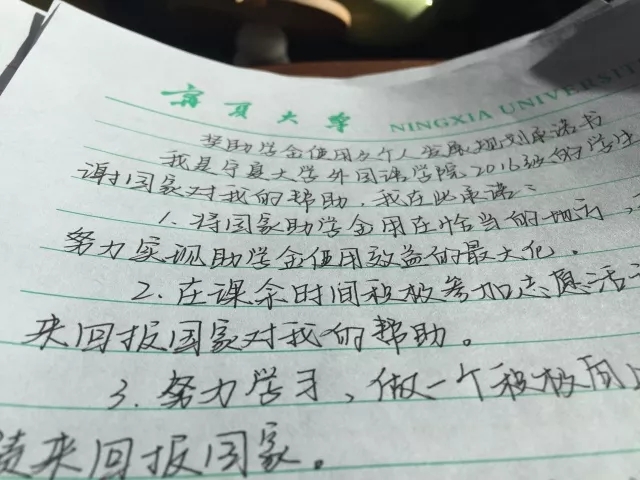 宁夏大学 NINGXIA UNIVERSITY
奖助学金使用及个人发展规划承诺书
我是宁夏大学外国语学院2016级的学生
谢国家对我的帮助,我在此承诺:
1.将国家助学金用在恰当的地方,
努力实现助学金使用效益的最大化。
2.在课余时间积极参加志愿活
来回报国家对我的帮助。
3.努力学习,做一个积极向
来回报国家。